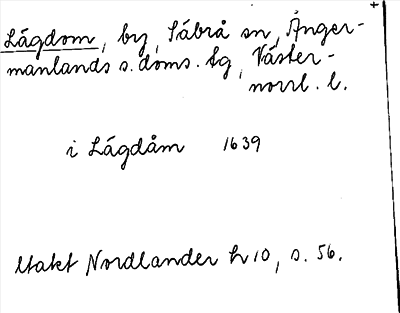 Lågdom, by, Säbrå sn, Ånger-
manlands s. doms. tg, Väster-
norrl. l.
i Lågdåm 1639
Utakt Nordlander h 10, s. 56.